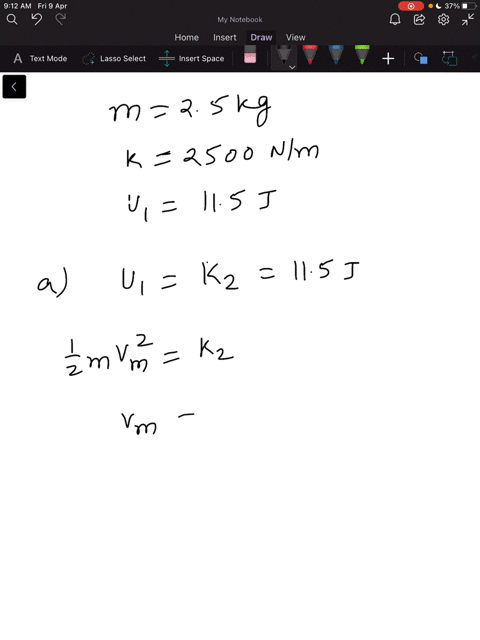 9:12 AM Fri 9 Apr 37%
My Notebook
Home Insert Draw View
Text Mode Lasso Select Insert Space
m = 2.5 kg
k = 2500 N/m
U₁ = 11.5 J
a) U₁ = K₂ = 11.5 J
½ m Vm² = K₂
Vm =